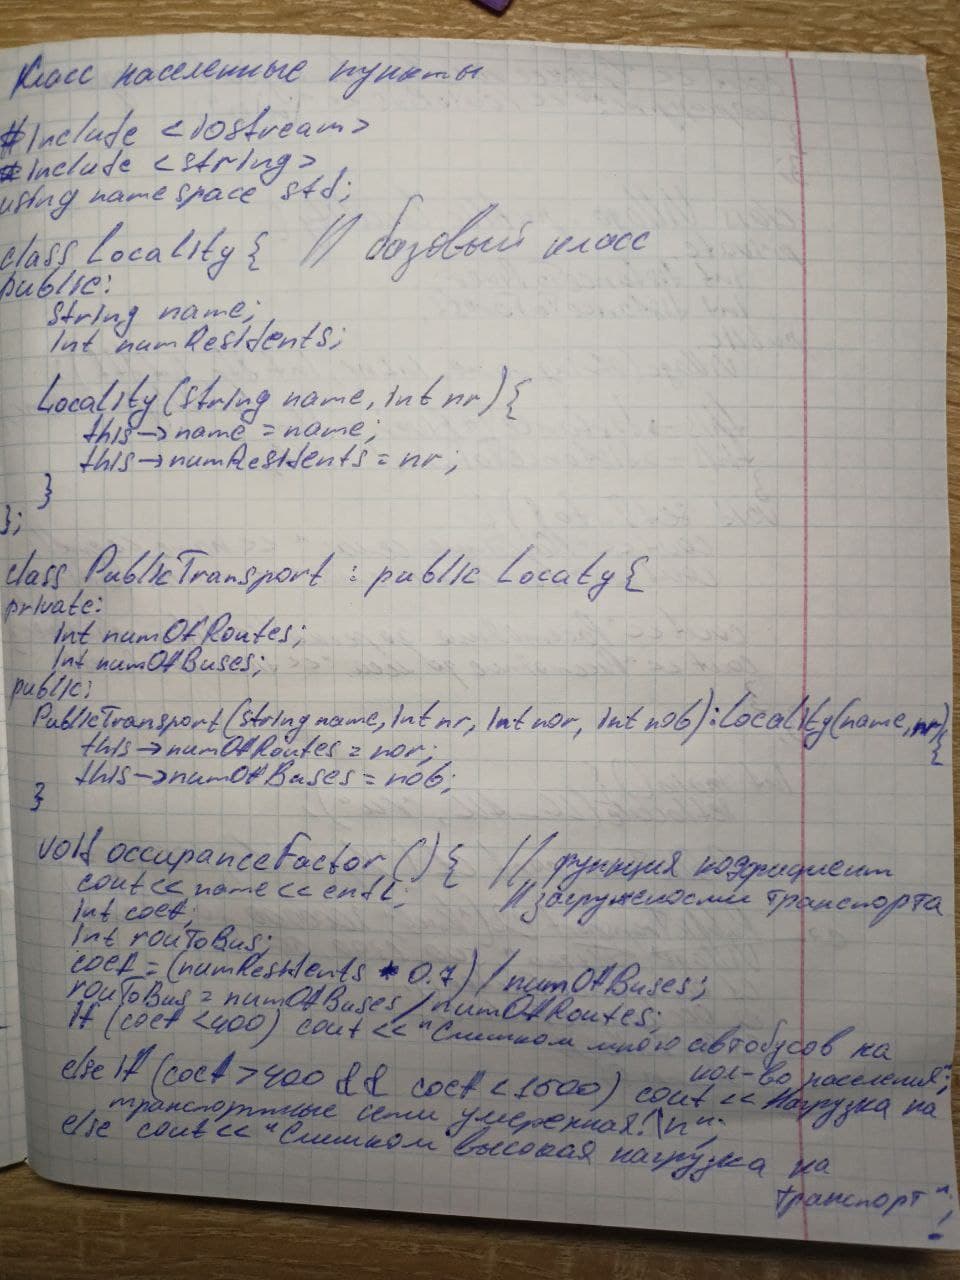 Класс населенные пункты
#include <iostream>
#include <string>
using namespace std;
class Locality { // базовый класс
public:
string name;
int numResidents;
Locality (string name, int nr) {
this->name = name;
this->numResidents = nr;
}
};
class PublicTransport : public Locaty {
private:
int numOfRoutes;
int numOfBuses;
public:
PublicTransport (string name, int nr, int nor, int nob) : Locality (name, nr) {
this->numOfRoutes = nor;
this->numOfBuses = nob;
}
void occupanceFactor () { // функция коэфициент
cout << name << endl; // загружености транспорта
int coef;
int rouToBus;
coef = (numResidents * 0.7) / numOfBuses;
rouToBus = numOfBuses / numOfRoutes;
if (coef < 400) cout << "Слишком много автобусов на
кол-во населения";
else if (coef > 400 && coef < 1500) cout << "Нагрузка на
транспортные сети умеренная!\n";
else cout << "Слишком высокая нагрузка на
транспорт!";